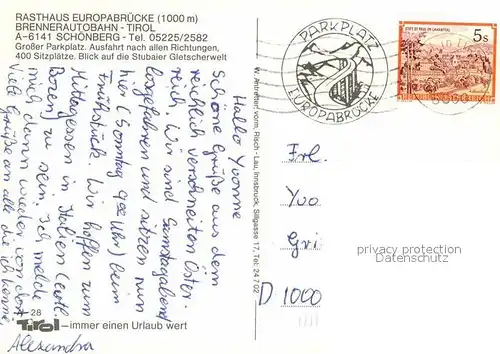 RASTHAUS EUROPABRÜCKE (1000 m)
BRENNERAUTOBAHN - TIROL
A-6141 SCHÖNBERG - Tel. 05225/2582
Großer Parkplatz. Ausfahrt nach allen Richtungen,
400 Sitzplätze. Blick auf die Stubaier Gletscherwelt
Hallo Yvonne
Schöne Grüße aus dem
reichlich verschneiten Öster-
reich. Wir sind Samstagabend
losgefahren und sitzen nun
hier (Sonntag 9 00 Uhr) beim
Frühstück. Wir hoffen zum
Mittagessen in Italien (evtl.
Bozen) zu sein. Ich melde
mich dann wieder von dort
Viele Grüße an alle die ich kenne,
Alexandra
28
Tirol – immer einen Urlaub wert
W. Antretter, vorm. Risch - Lau, Innsbruck, Sillgasse 17, Tel. 24 7 02
PARKPLATZ
EUROPABRÜCKE
STIFT ST. PAUL IM LAVANTTAL
5 S
REPUBLIK ÖSTERREICH
Frl.
Yvo
Gri
D 1000
privacy protection
Datenschutz